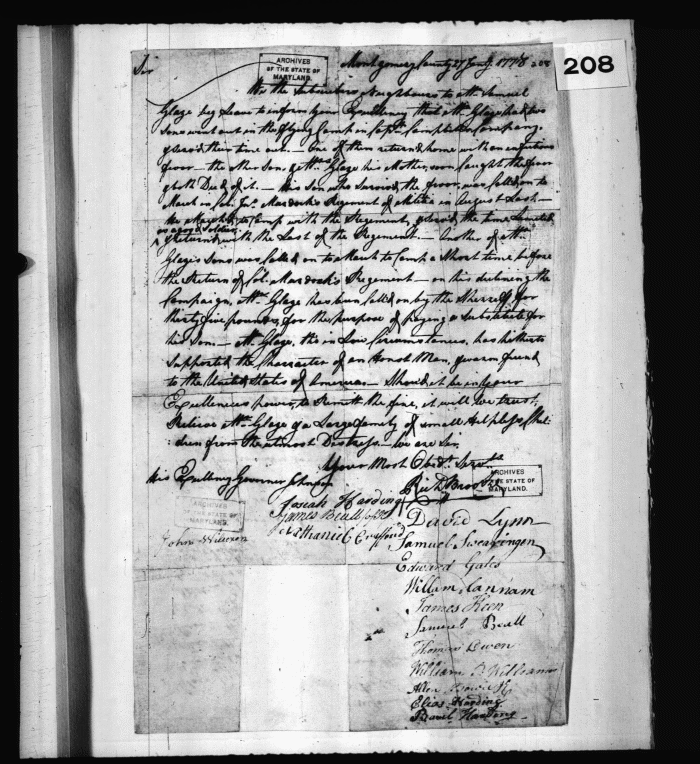 208
Sir
ARCHIVES
OF THE STATE OF
MARYLAND.
Montgomery County 27 Jany. 1778 208
We the Subscribers, Neighbours to Mr. Samuel
Glaze beg Leave to inform your Excellency that Mr. Glaze had two
sons went out in the flying Camp in Capt. Company,
& serv'd their time out — One of them return'd home with an infectious
fever — the other Son, & Mrs. Glaze his Mother, soon caught the fever
& both Died of it. — his Son who Surviv'd the fever, was called on to
March in Col. Jno. Murdock's Regiment of Militia in August Last —
He March'd to Camp with the Regiment, & serv'd the time Limited
as a good Soldier
& Return'd with the Last of the Regiment. — Another of Mr.
Glaze's Sons was called on to March to Camp a Short time before
the Return of Col. Murdock's Regiment — on his declining the
Campaign, Mr. Glaze has been called on by the Sherriff for
thirty five pounds, for the purpose of paying a Substitute for
his Son — Mr. Glaze, tho in Low Circumstances, has hitherto
Supported the Character of an Honest Man, & warm friend
to the United States of America — Should it be in your
Excellencies power, to Remitt the fine, it will we trust,
Relieve Mr. Glaze & a Large family of small Helpless Chil-
dren from the utmost Distress — We are Sir,
Your Most Obedt. Servts.
His Excellency Governor Johnson
ARCHIVES
OF THE STATE OF
MARYLAND.
Richd. Brooke
Josiah Harding
James Beall
Nathaniel Crafford
ARCHIVES
OF THE STATE OF
MARYLAND.
John Wilcoxen
David Lynn
Samuel Swearingen
Edward Gates
William Lannam
James Keen
Samuel Beall
Thomas Owen
William Williams
Allen Bowie
Elias Harding
Harding